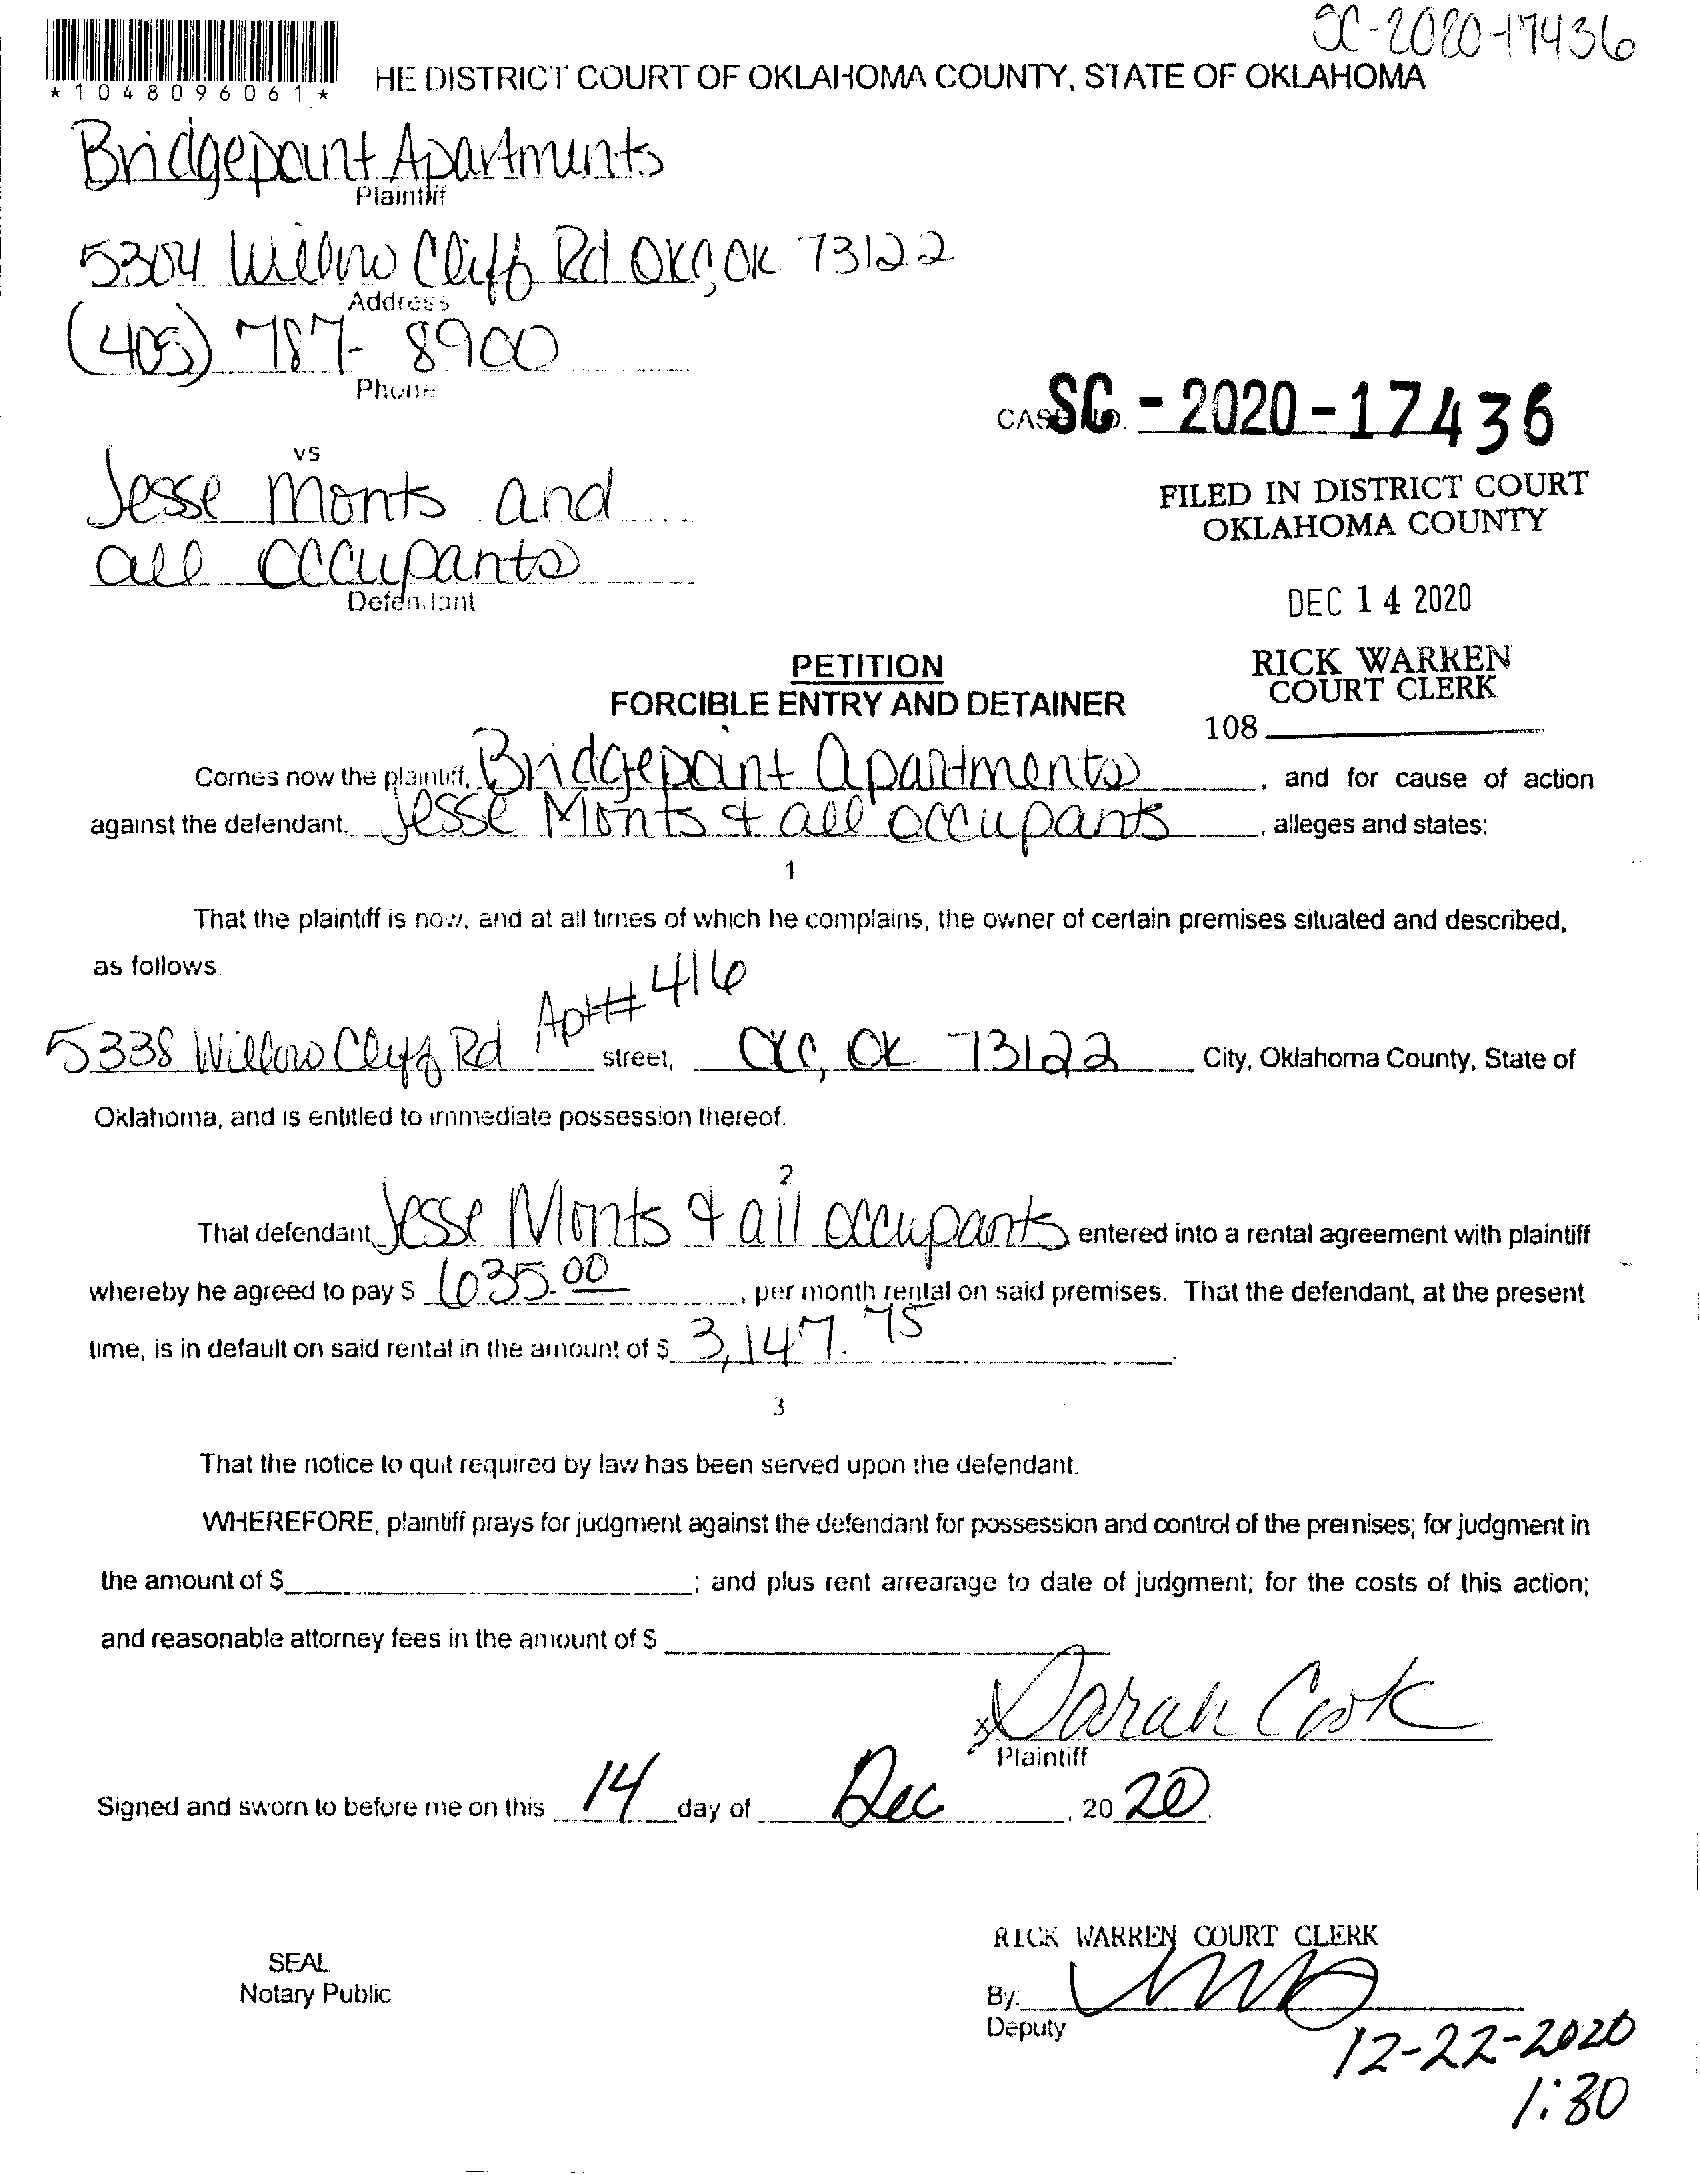 SC-2020-17436
*1048096061*
HE DISTRICT COURT OF OKLAHOMA COUNTY, STATE OF OKLAHOMA
Bridgepoint Apartments
Plaintiff
5304 Willow Cliff Rd OKC, OK 73122
Address
(405) 787-8900
Phone
CASE NO. SC-2020-17436
vs
Jesse Monts and
all occupants
Defendant
FILED IN DISTRICT COURT
OKLAHOMA COUNTY
DEC 14 2020
RICK WARREN
COURT CLERK
108
PETITION
FORCIBLE ENTRY AND DETAINER
Comes now the plaintiff, Bridgepoint Apartments, and for cause of action
against the defendant, Jesse Monts & all occupants, alleges and states:
1
That the plaintiff is now, and at all times of which he complains, the owner of certain premises situated and described,
as follows.
5338 Willow Cliff Rd Apt# 416 street, OKC, OK 73122 City, Oklahoma County, State of
Oklahoma, and is entitled to immediate possession thereof.
2
That defendant, Jesse Monts & all occupants entered into a rental agreement with plaintiff
whereby he agreed to pay $ 635.00, per month rental on said premises. That the defendant, at the present
time, is in default on said rental in the amount of $ 3,147.75.
3
That the notice to quit required by law has been served upon the defendant.
WHEREFORE, plaintiff prays for judgment against the defendant for possession and control of the premises; for judgment in
the amount of $; and plus rent arrearage to date of judgment; for the costs of this action;
and reasonable attorney fees in the amount of $
Sarah Cook
Plaintiff
Signed and sworn to before me on this 14 day of Dec, 2020.
RICK WARREN COURT CLERK
SEAL
Notary Public
By:
Deputy
12-22-2020
1:30